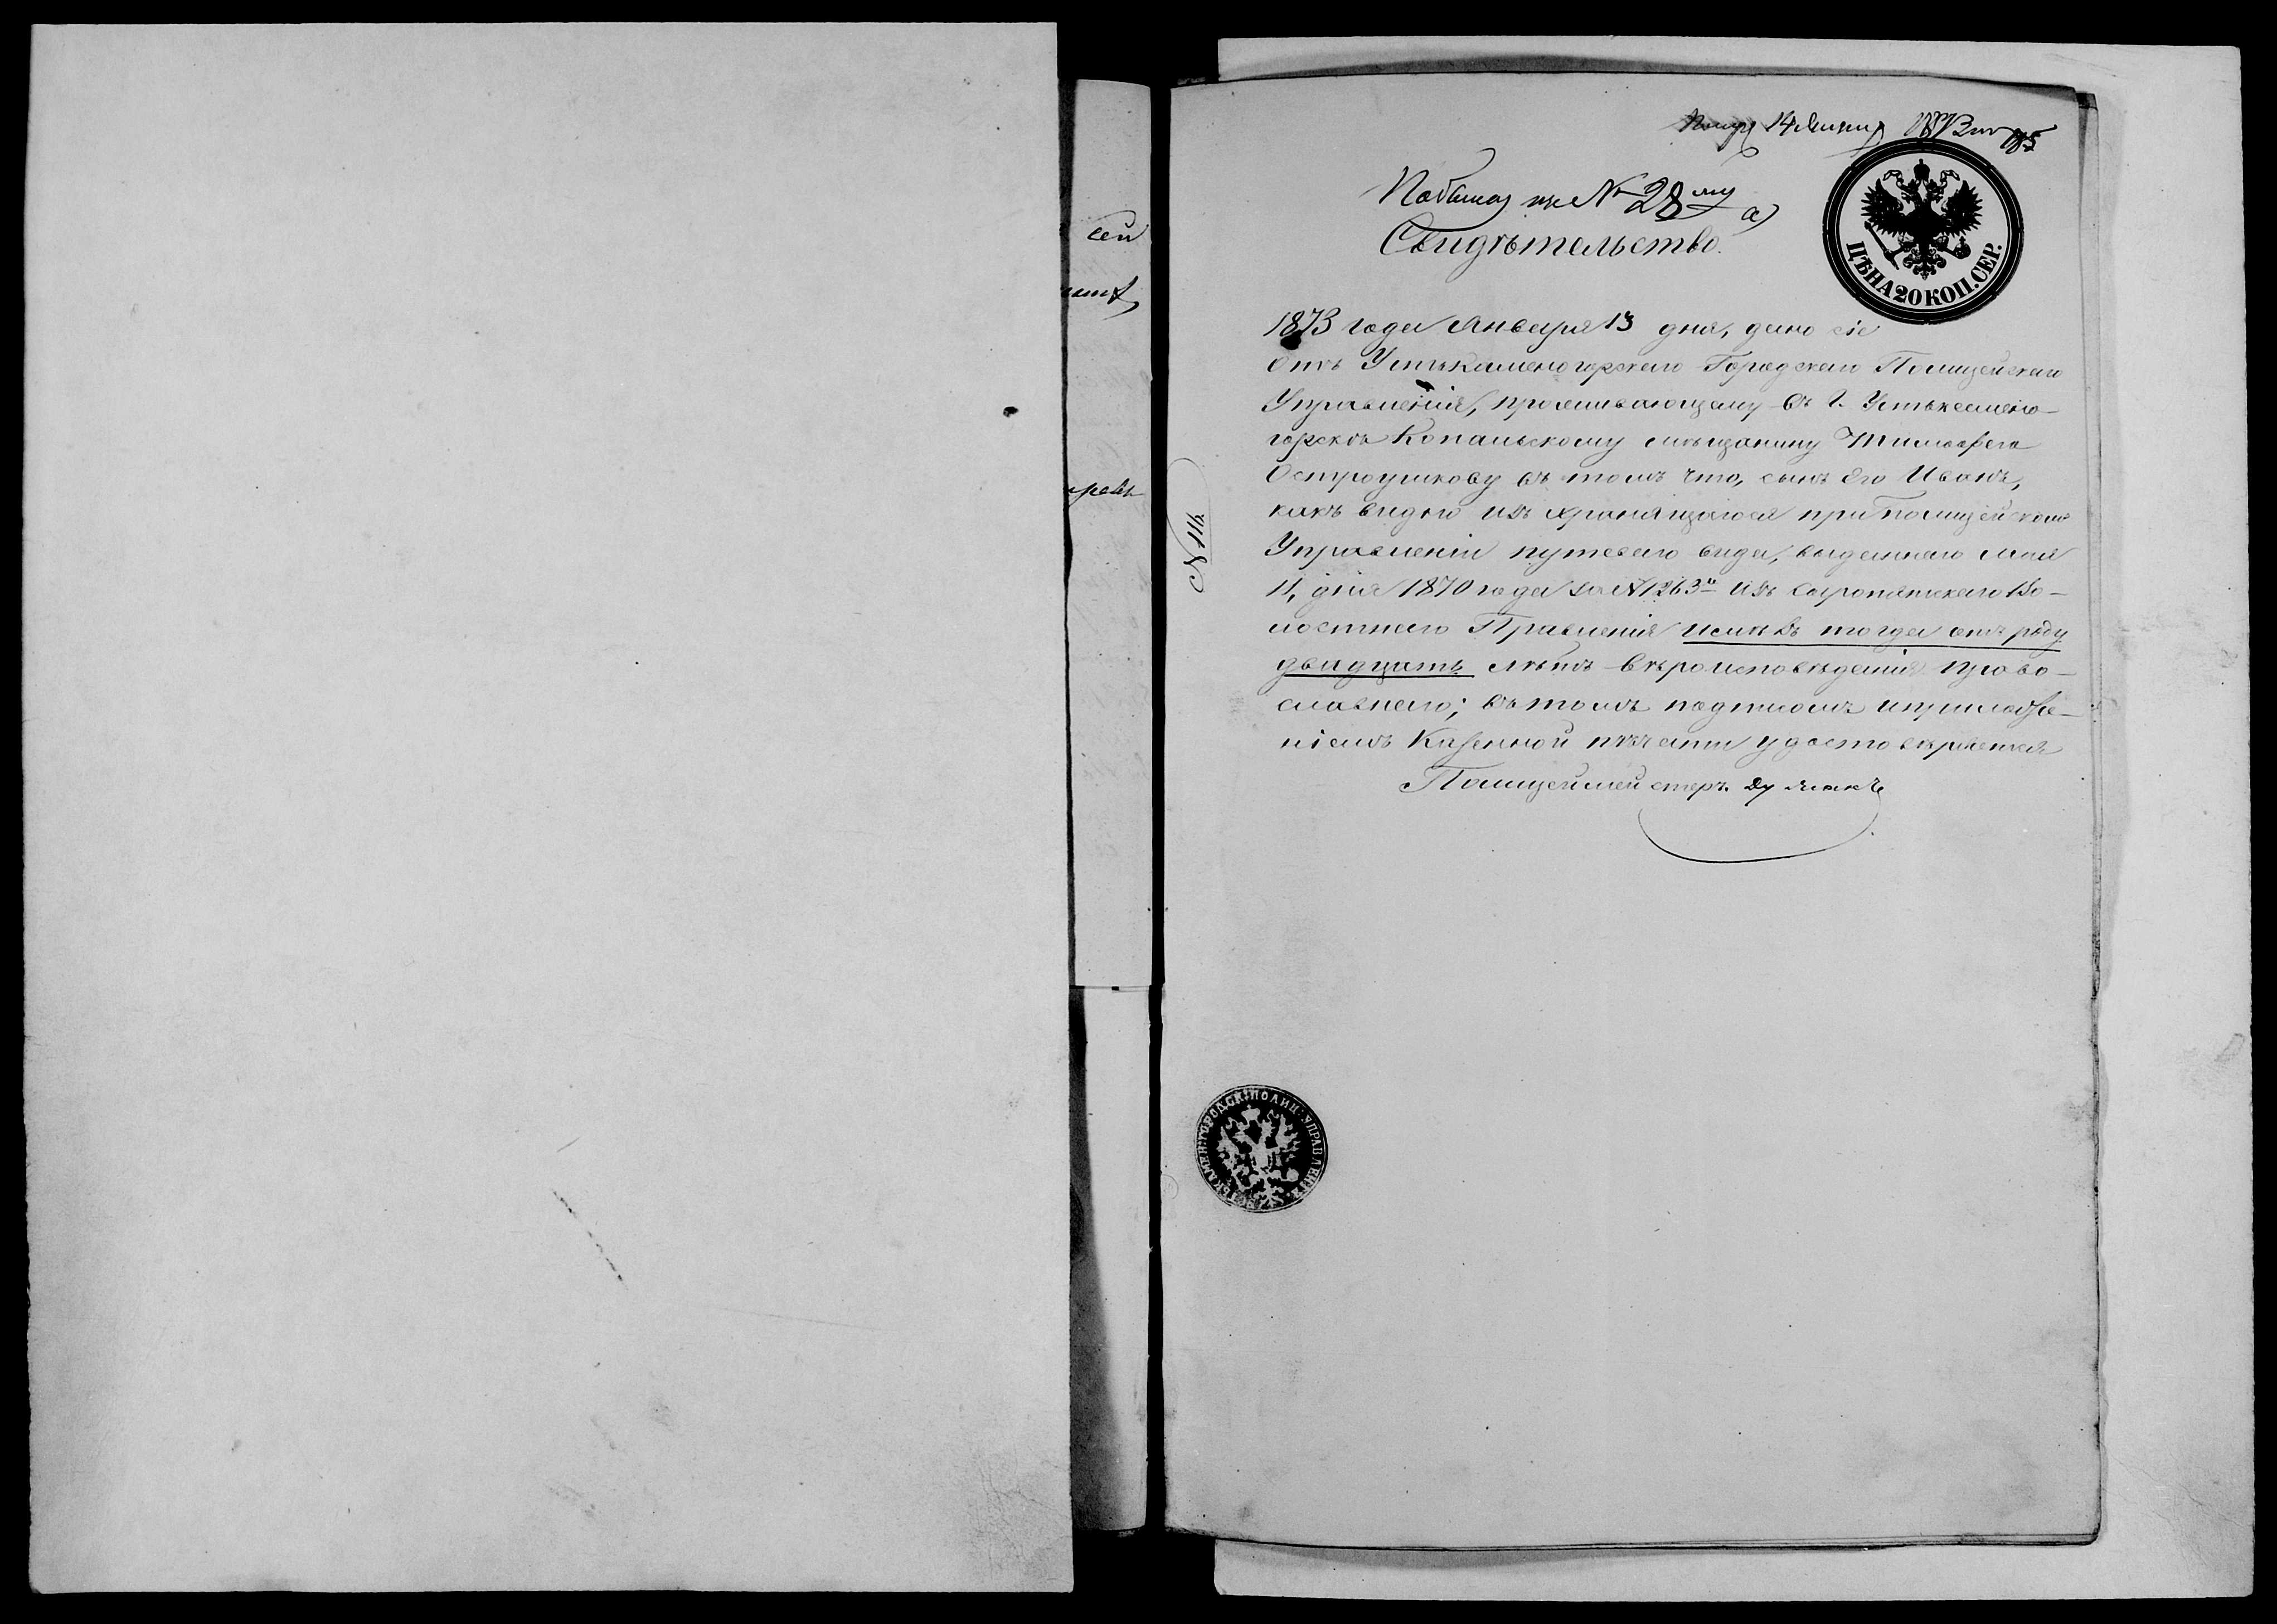 сей
185
14 Января 1873
№ 28му а)
Свидѣтельство.
ЦѢНА 20 КОП. СЕР.
1873 года Января 13 дня, дано сіе
отъ Устькаменогорскаго Городскаго Полицейскаго
Управленія, проживающему въ г. Устькамено-
горскѣ Копальскому мѣщанину Тимофею
Остроушкову въ томъ что, сынъ его Иванъ,
какъ видно изъ хранящагося при Полицейскомъ
Управленіи путеваго вида, выданнаго мая
11, дня 1870 года за № 1263м изъ Волостнаго Правленія имѣлъ тогда отъ роду
двадцать лѣтъ вѣроисповѣданія право-
славнаго; въ томъ подписомъ и приложе-
ніемъ Казенной печати удостовѣряется
Полицеймейстеръ
№ 116.
УСТЬКАМЕН. ГОРОДСК. ПОЛИЦ. УПРАВЛЕНІЯ